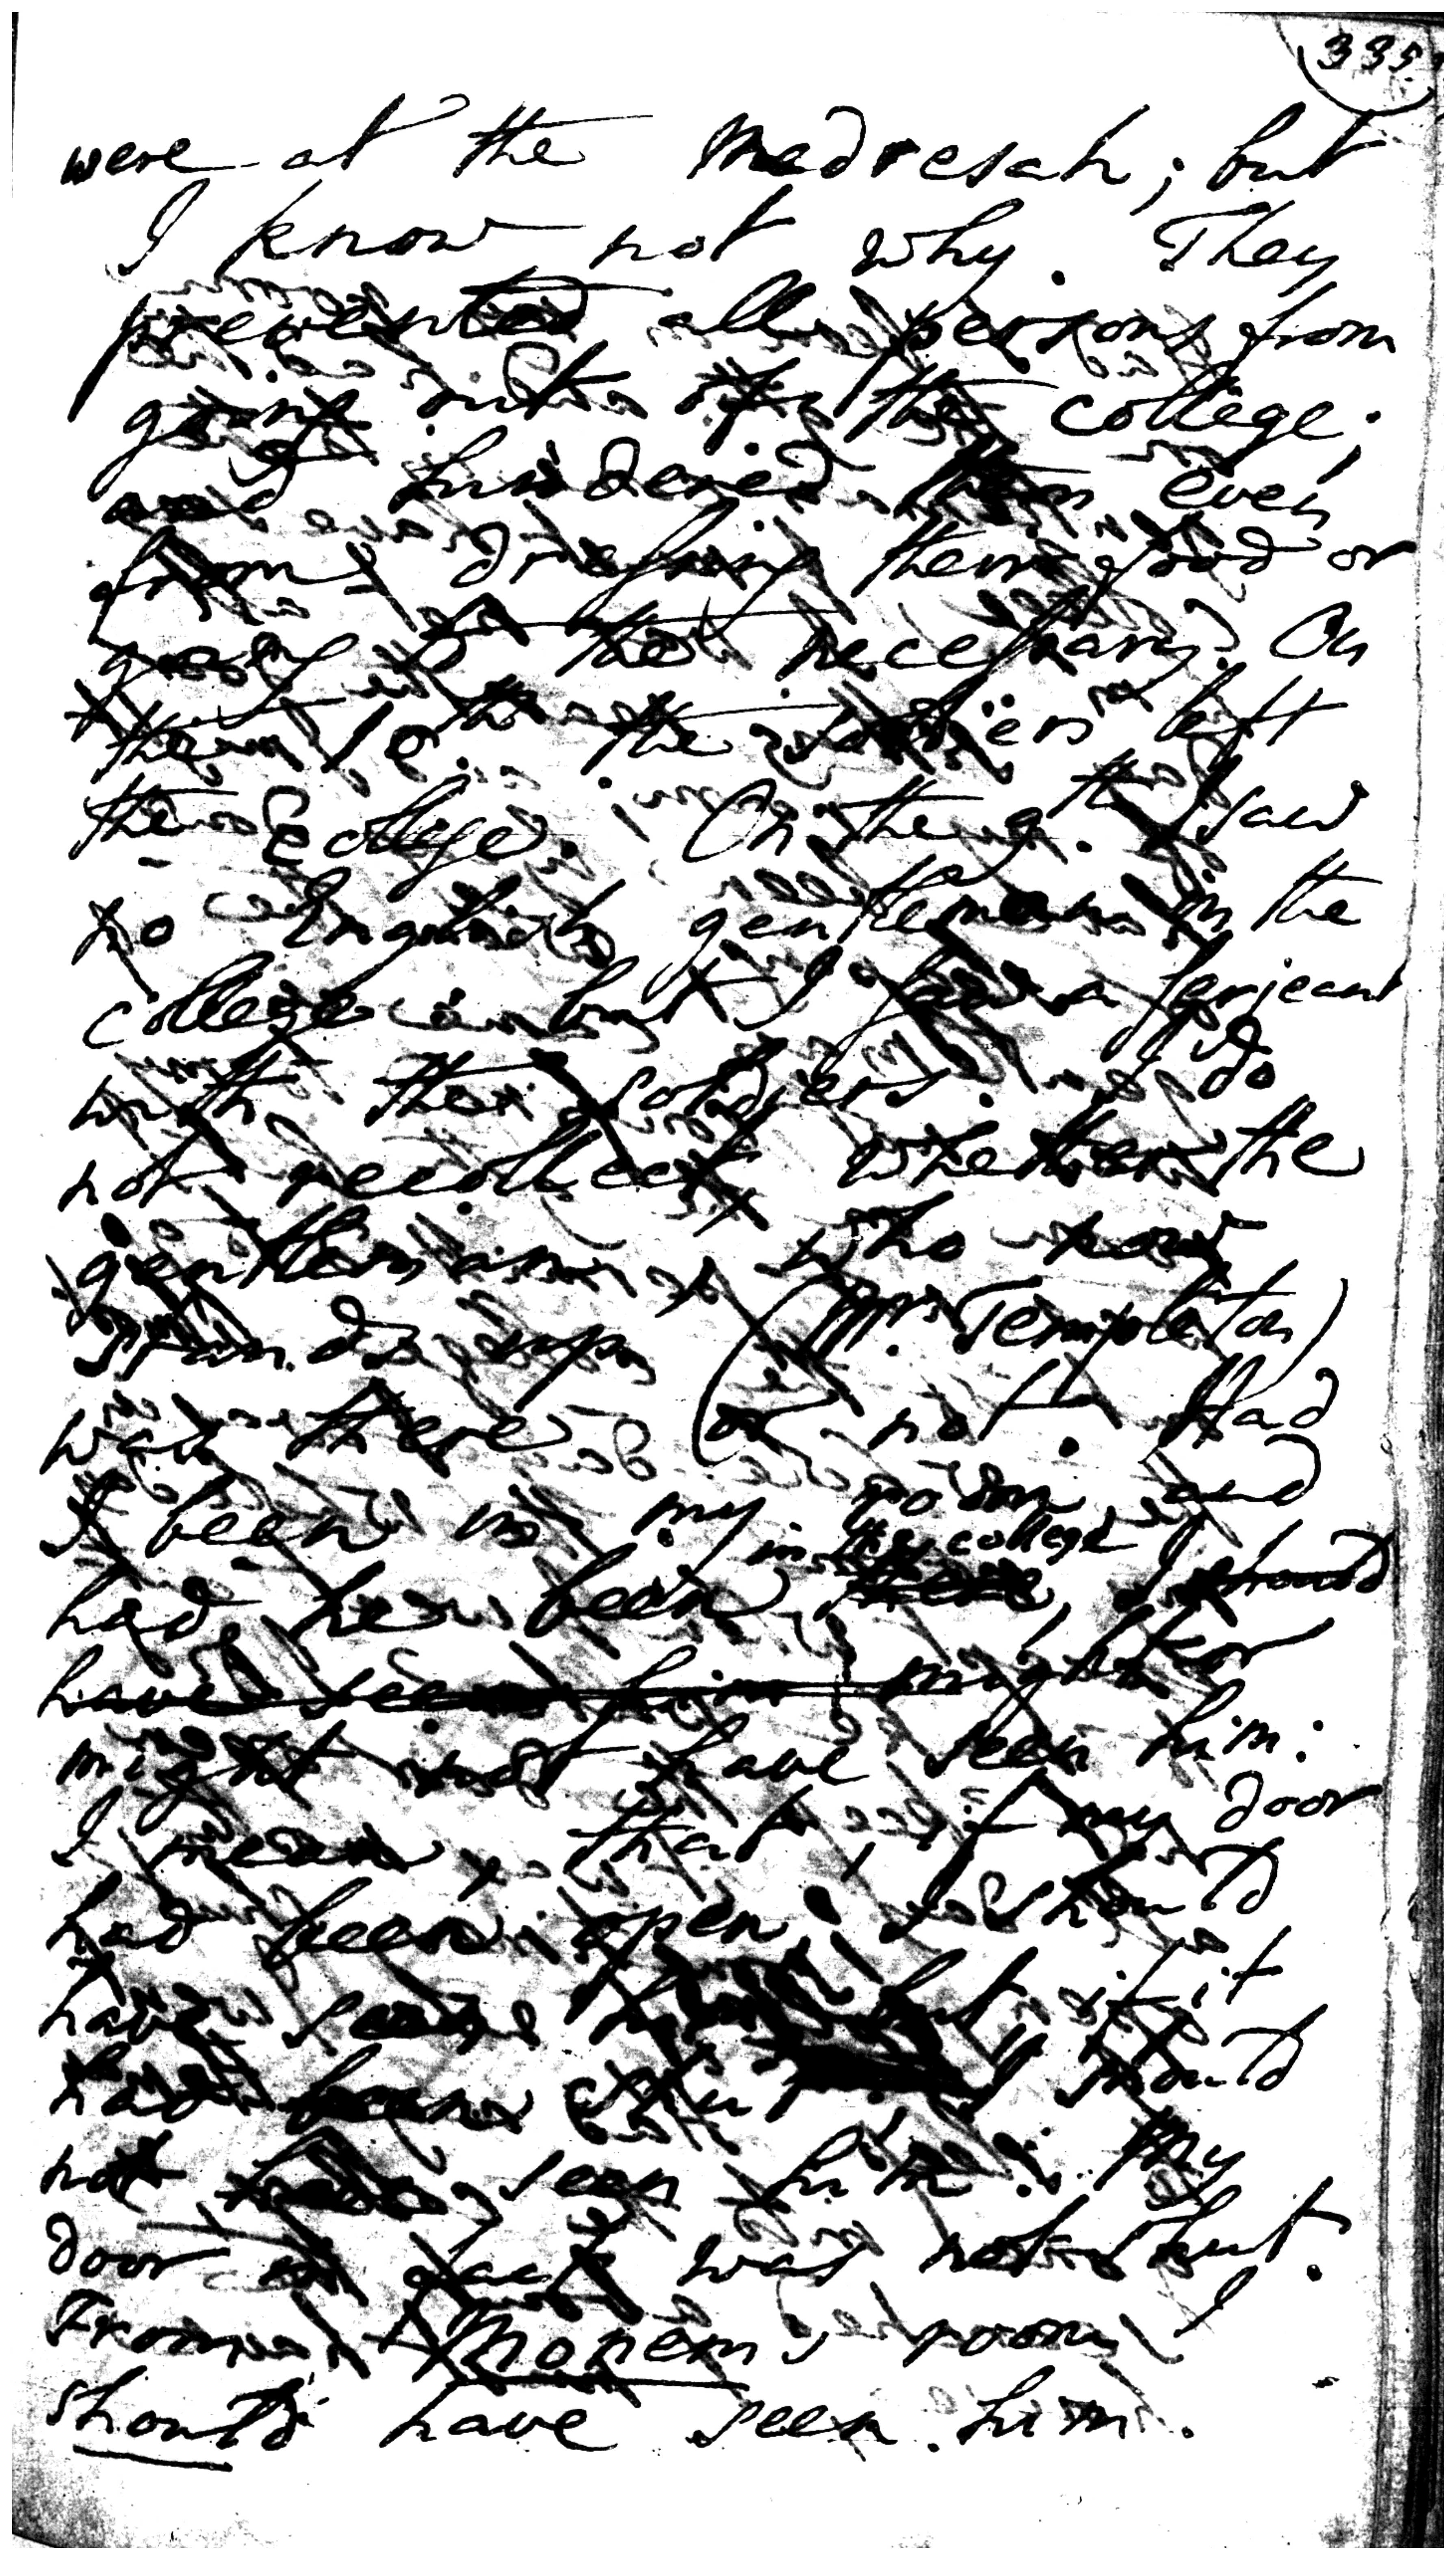 335.
were at the Madresah; but
I know not why. They
prevented all persons from
going out of the college;
and hindered them even
from dressing their food or
going to the necessary. On
the 10.th the soldiers left
the College. On the 9.th I saw
no English gentleman in the
college; but I saw a serjeant
with the soldiers. I do
not recollect whether the
gentleman who now
stands up (Mr. Templeton)
was there or not. Had
I been in my room, and
had he been in the college there, I should
have seen him might or
might not have seen him:
I mean that, if my door
had been open, I should
have seen him; but if it
had been shut I should
not have seen him: My
door in fact was not shut.
From Monem's room I
should have seen him.